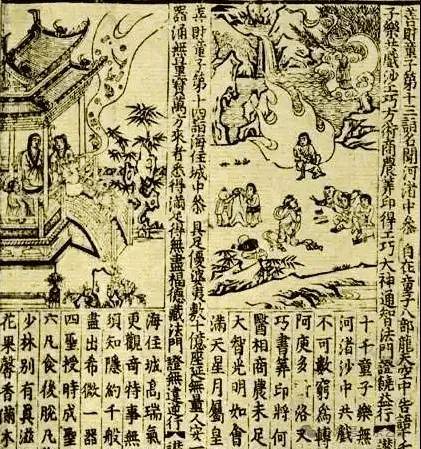 善財童子第十三詣名聞河渚中參 自在童子八部龍天空中告語十千
樂共戲沙工巧方術商農筭印得工巧大神通智法門證饒益行
十千童子樂無
河渚沙中共戲
不可數窮為轉
阿庾多 絡又
巧書筭印將何
醫相商農未足
大智光明如會
滿天星月屬呈
善財童子第十四詣海住城中參 具足優婆夷數十億座延無量人安一
器滿無量 萬方來者悉得滿足得無盡福德藏法門 證無違逆行
海住城高瑞氣
更觀奇特事無
須知隱約千般
盡出希微一器
四聖授時成聖
六凡食後脫凡
少林別有真滋
花果馨香備本